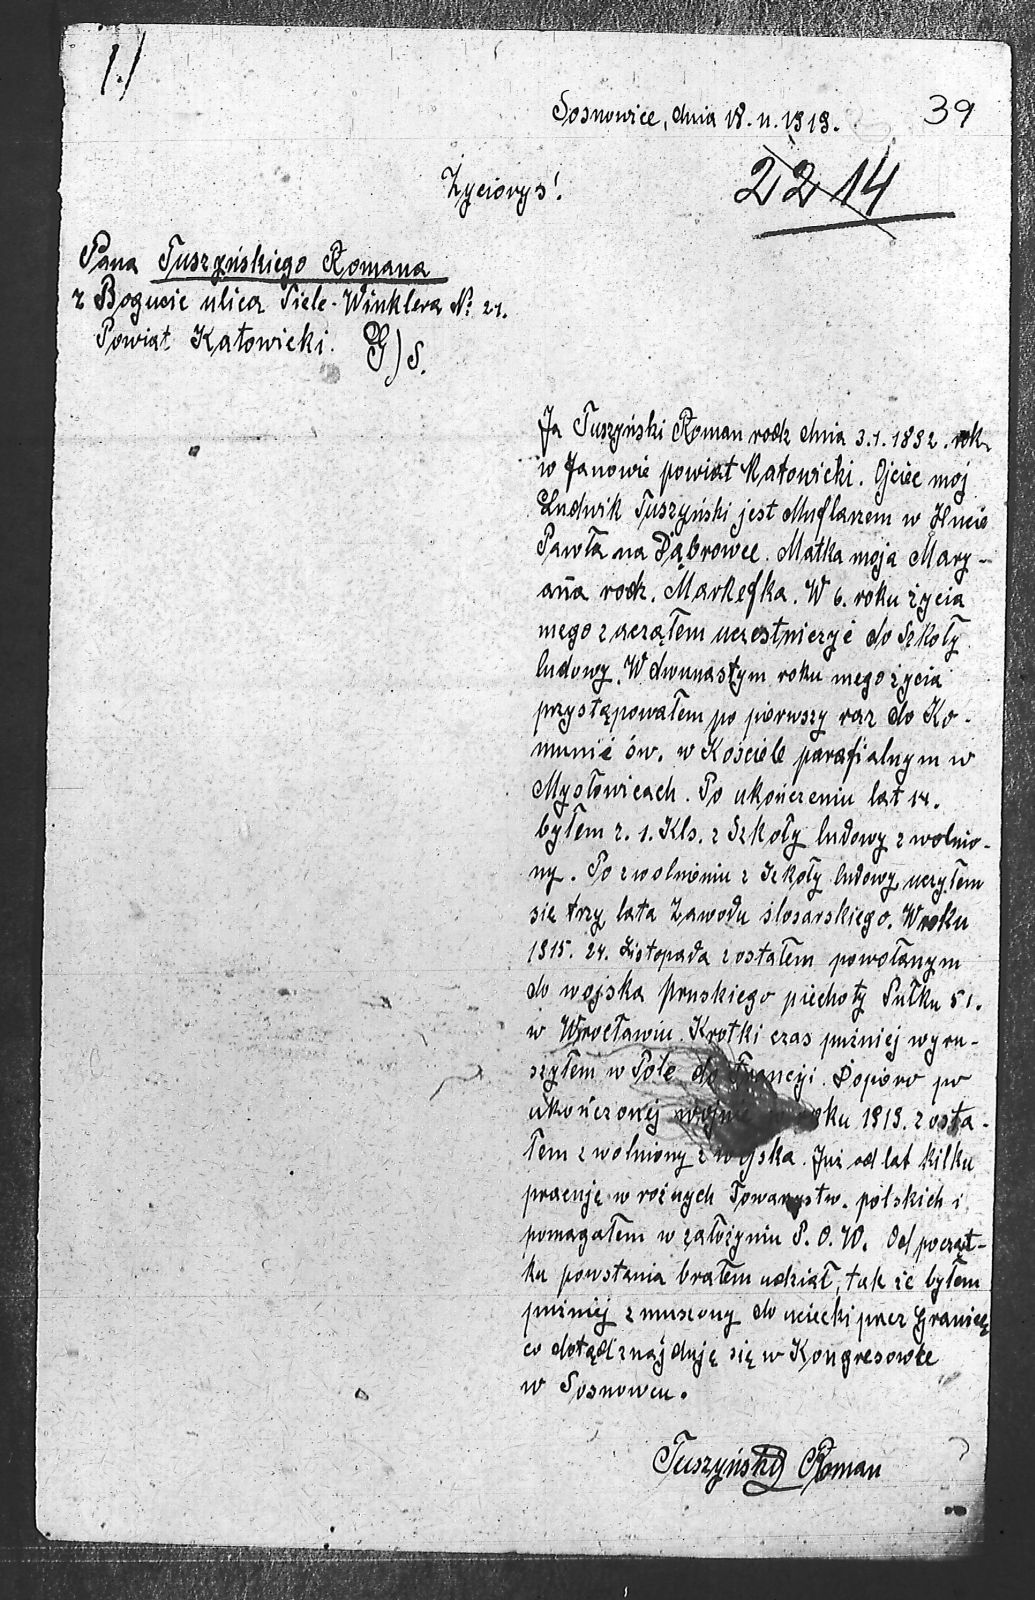 1./
39
Sosnowice, dnia 18. 11. 1919.
22 14
Życiorys!
Pana Tuszyńskiego Romana
z Bogucic ulica Tiele-Winklera No. 21.
Powiat Katowicki. G) S.
Ja Tuszyński Roman rodz dnia 3.1.1892. rok.
w Janowie powiat Katowicki. Ojciec moj
Ludwik Tuszyński jest Muflarzem w Hucie
Pawła na Dąbrowce. Matka moja Mary-
ana rodz. Markefka. W 6. roku życia
mego zacząłem uczestniczyć do Szkoły
ludowy. W dwunastym roku mego życia
przystąpowałem po pierwszy raz do Ko-
munié św. w Kościele parafialnym w
Mysłowicach. Po ukończeniu lat 14.
byłem z. 1. Kls. z Szkoły ludowy zwolnio-
ny. Po zwolnieniu z Szkoły ludowy uczyłem
się trzy lata Zawodu ślosarskiego. W roku
1915. 24. Listopada zostałem powołanym
do wojska pruskiego piechoty Pułku 51.
w Wrocławiu. Krotki czas puźniej wyru-
szyłem w Pole do Francyi. Dopiero po
ukończonej wojnie roku 1919. zosta-
łem zwolniony z wojska. Już od lat kilku
pracuję w rożnych Towarzystw. polskich i
pomagałem w założyniu P. O. W. Od począt-
ku powstania brałem udział, tak że byłem
puźniej zmuszony do uciecki przez Granicę
co dotąd znajduję się w Kongresowce
w Sosnowcu.
Tuszyński Roman